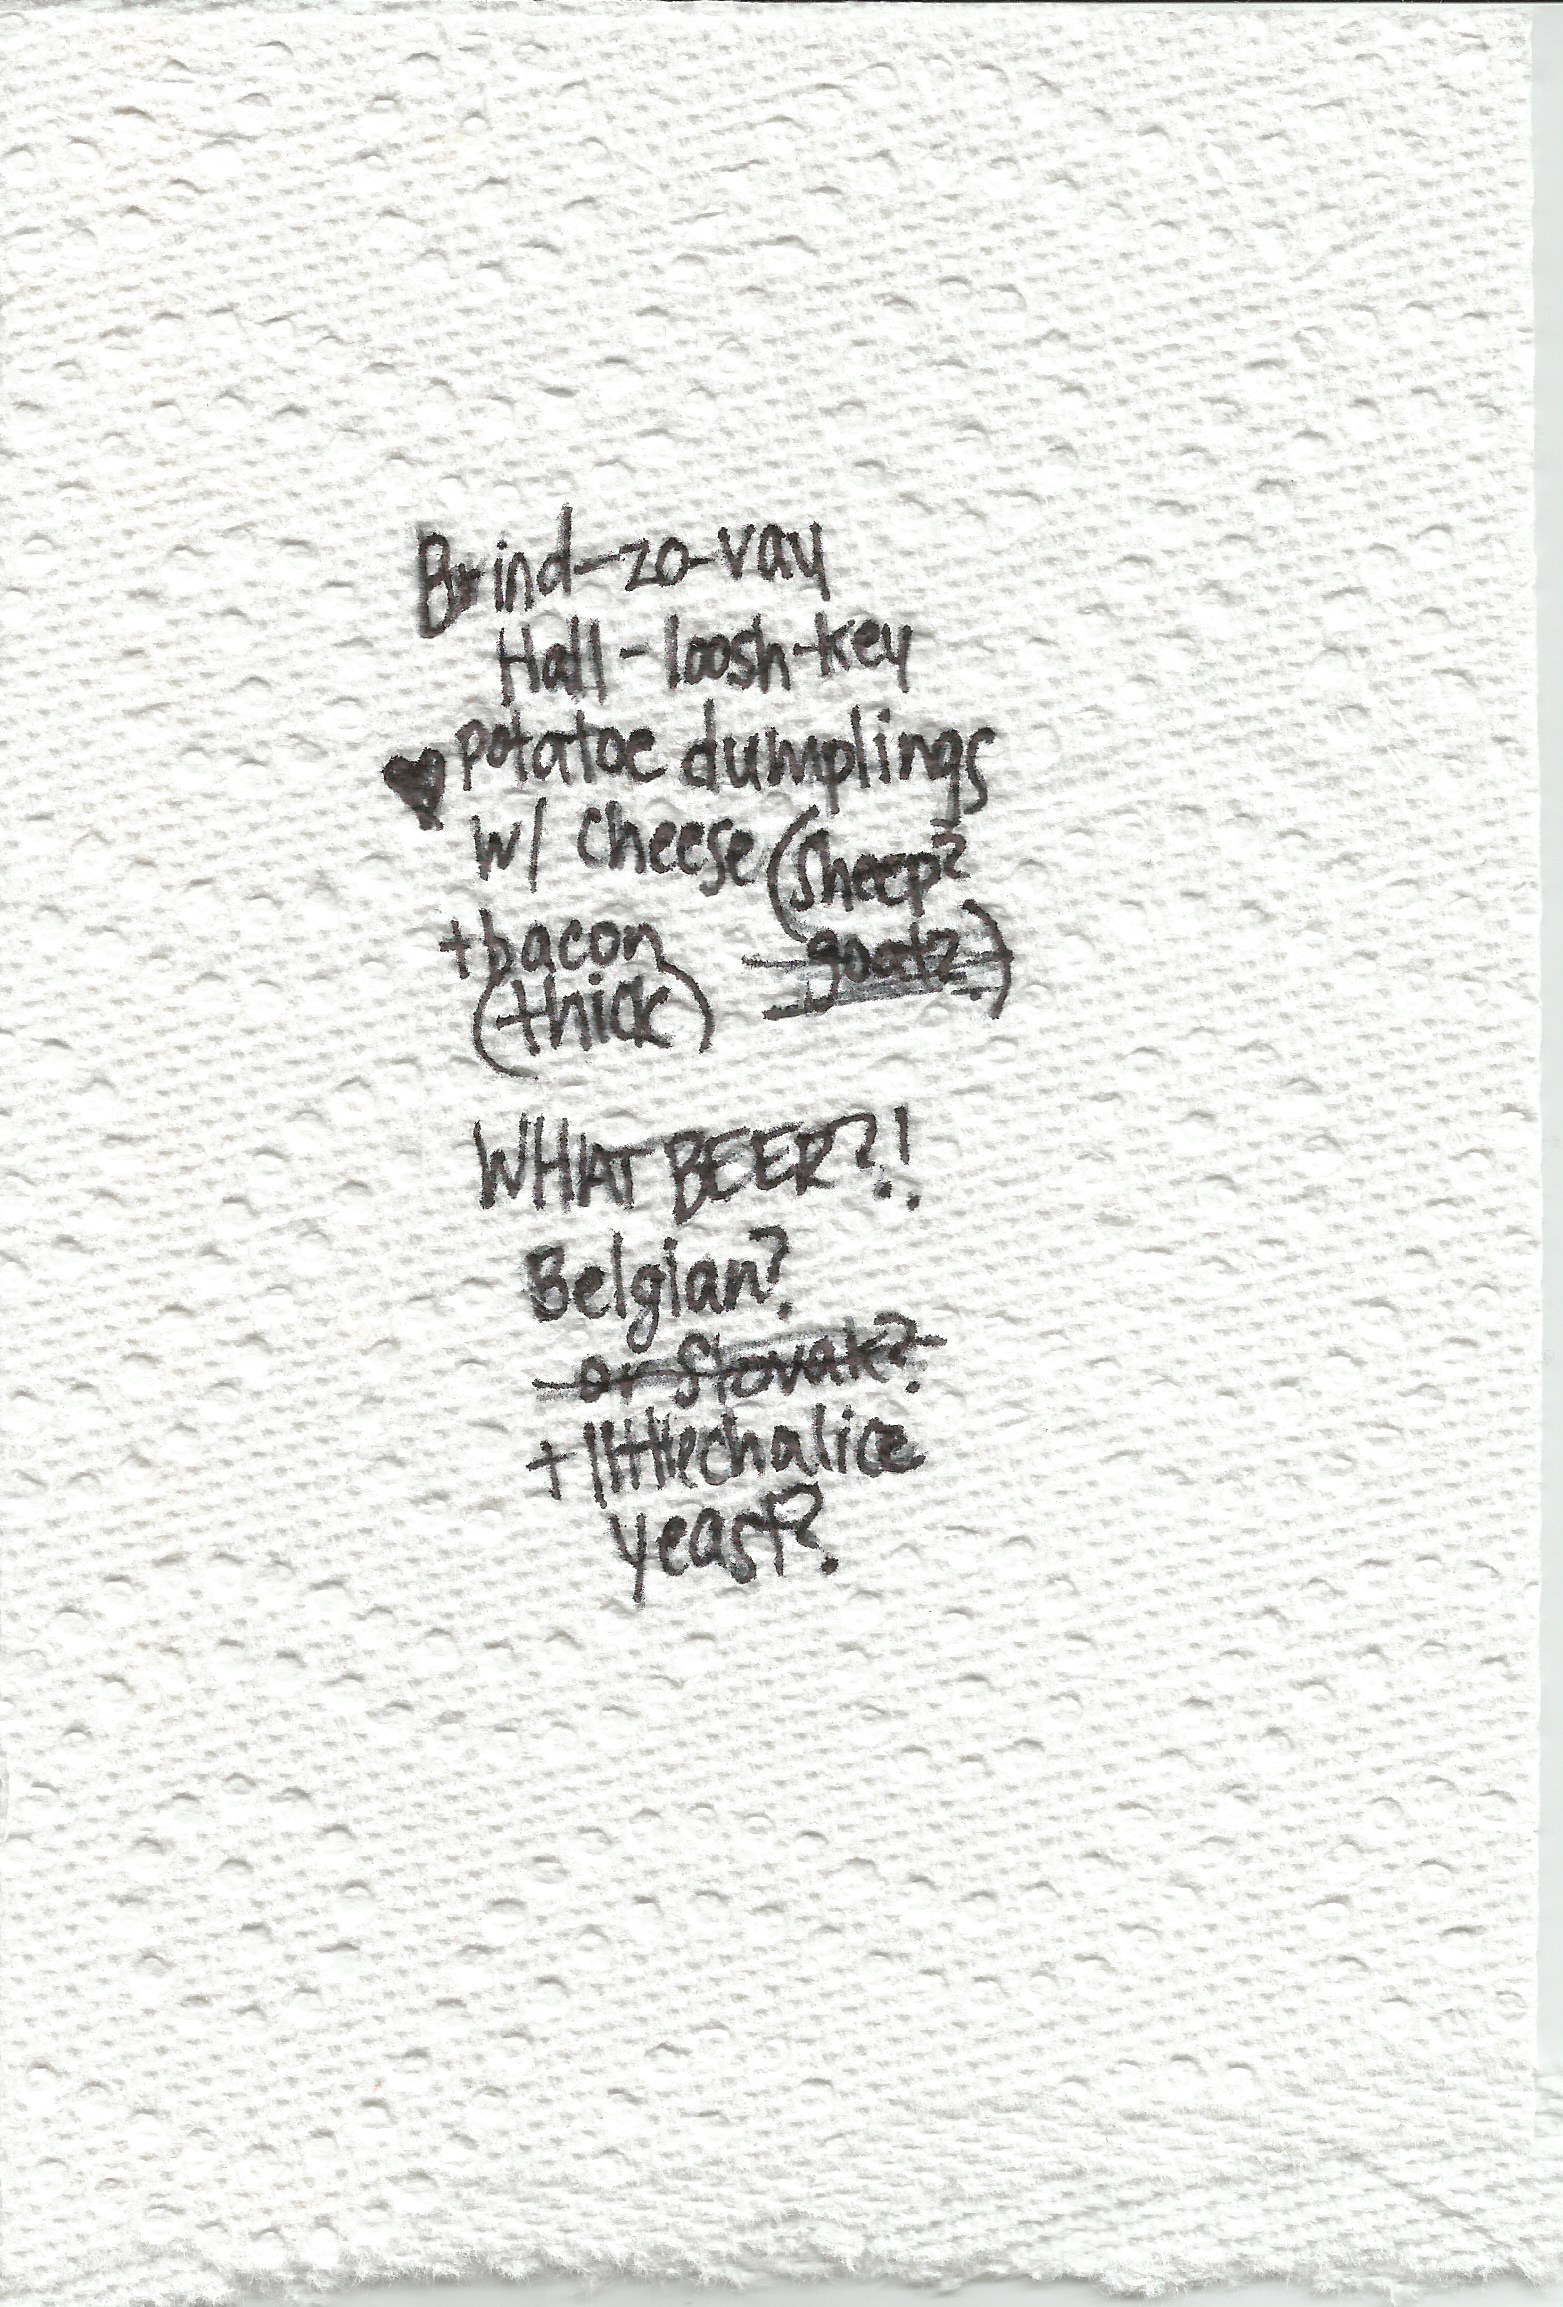 Brind-zo-vay
Hall-loosh-key
♥ potatoe dumplings
w/ cheese (sheep?
+bacon goat?)
(thick)
WHAT BEER?!
Belgian?
or Slovak?
+ little chalice
yeast?